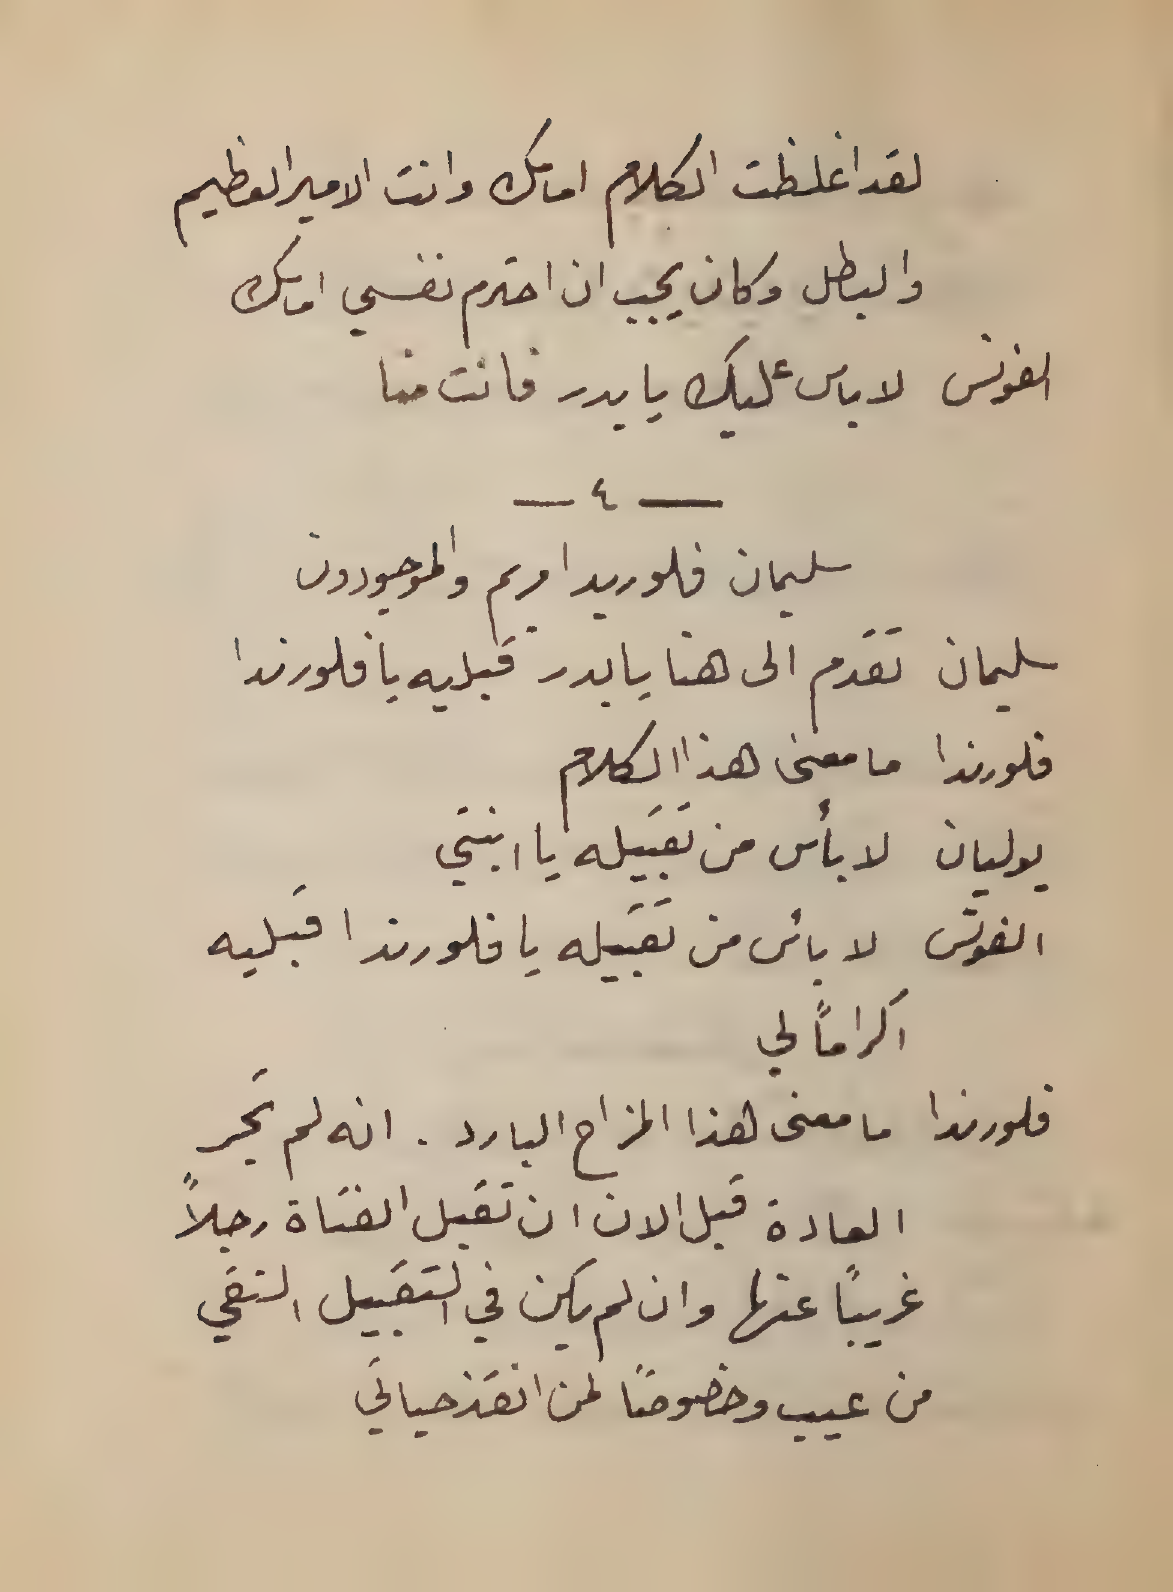 لقد اغلظت الكلام امامك وانت الامير العظيم
والبطل وكان يجب ان احترم نفسي امامك
الفونس لا باس عليك يا بدر فانت منا
— ٤ —
سليمان فلوريدا مريم والموجودون
سليمان تقدم الى هنا يا بدر قبليه يا فلورندا
فلورندا ما معنى هذا الكلام
يوليان لا بأس من تقبيله يا ابنتي
الفونس لا بأس من تقبيله يا فلورندا قبليه
اكراماً لي
فلورندا ما معنى هذا المزاح البارد . انه لم تجر
العادة قبل الان ان تقبل الفتاة رجلاً
غريباً عنها وان لم يكن في التقبيل النقي
من عيب وخصوصًا لمن انقذ حياتي